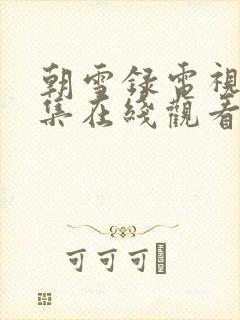 朝雪录电視
集在綫觀看
可可可